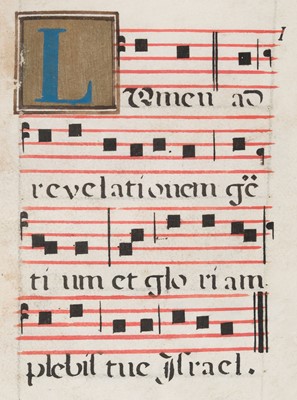 LUmen ad
revelationem gẽ
ti um et glo ri am
plebis tue Israel.